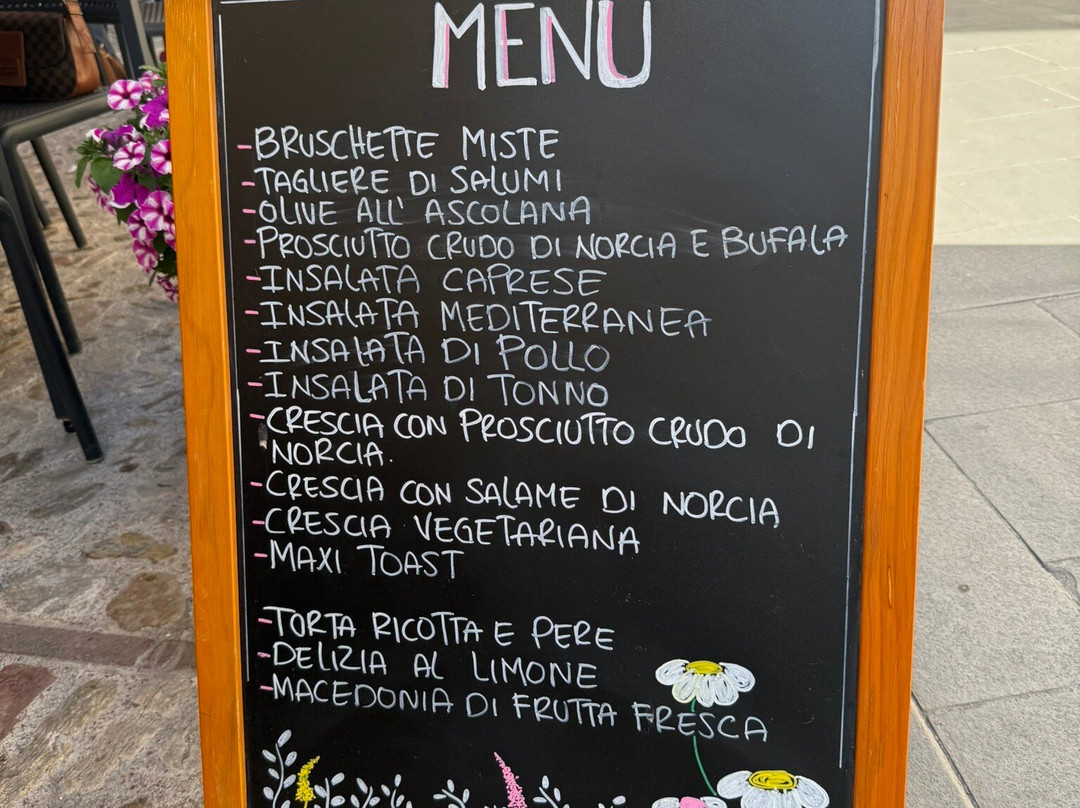 MENU
-BRUSCHETTE MISTE
-TAGLIERE DI SALUMI
-OLIVE ALL' ASCOLANA
-PROSCIUTTO CRUDO DI NORCIA E BUFALA
-INSALATA CAPRESE
-INSALATA MEDITERRANEA
-INSALATA DI POLLO
-INSALATA DI TONNO
-CRESCIA CON PROSCIUTTO CRUDO DI
NORCIA.
-CRESCIA CON SALAME DI NORCIA
-CRESCIA VEGETARIANA
-MAXI TOAST
-TORTA RICOTTA E PERE
-DELIZIA AL LIMONE
-MACEDONIA DI FRUTTA FRESCA